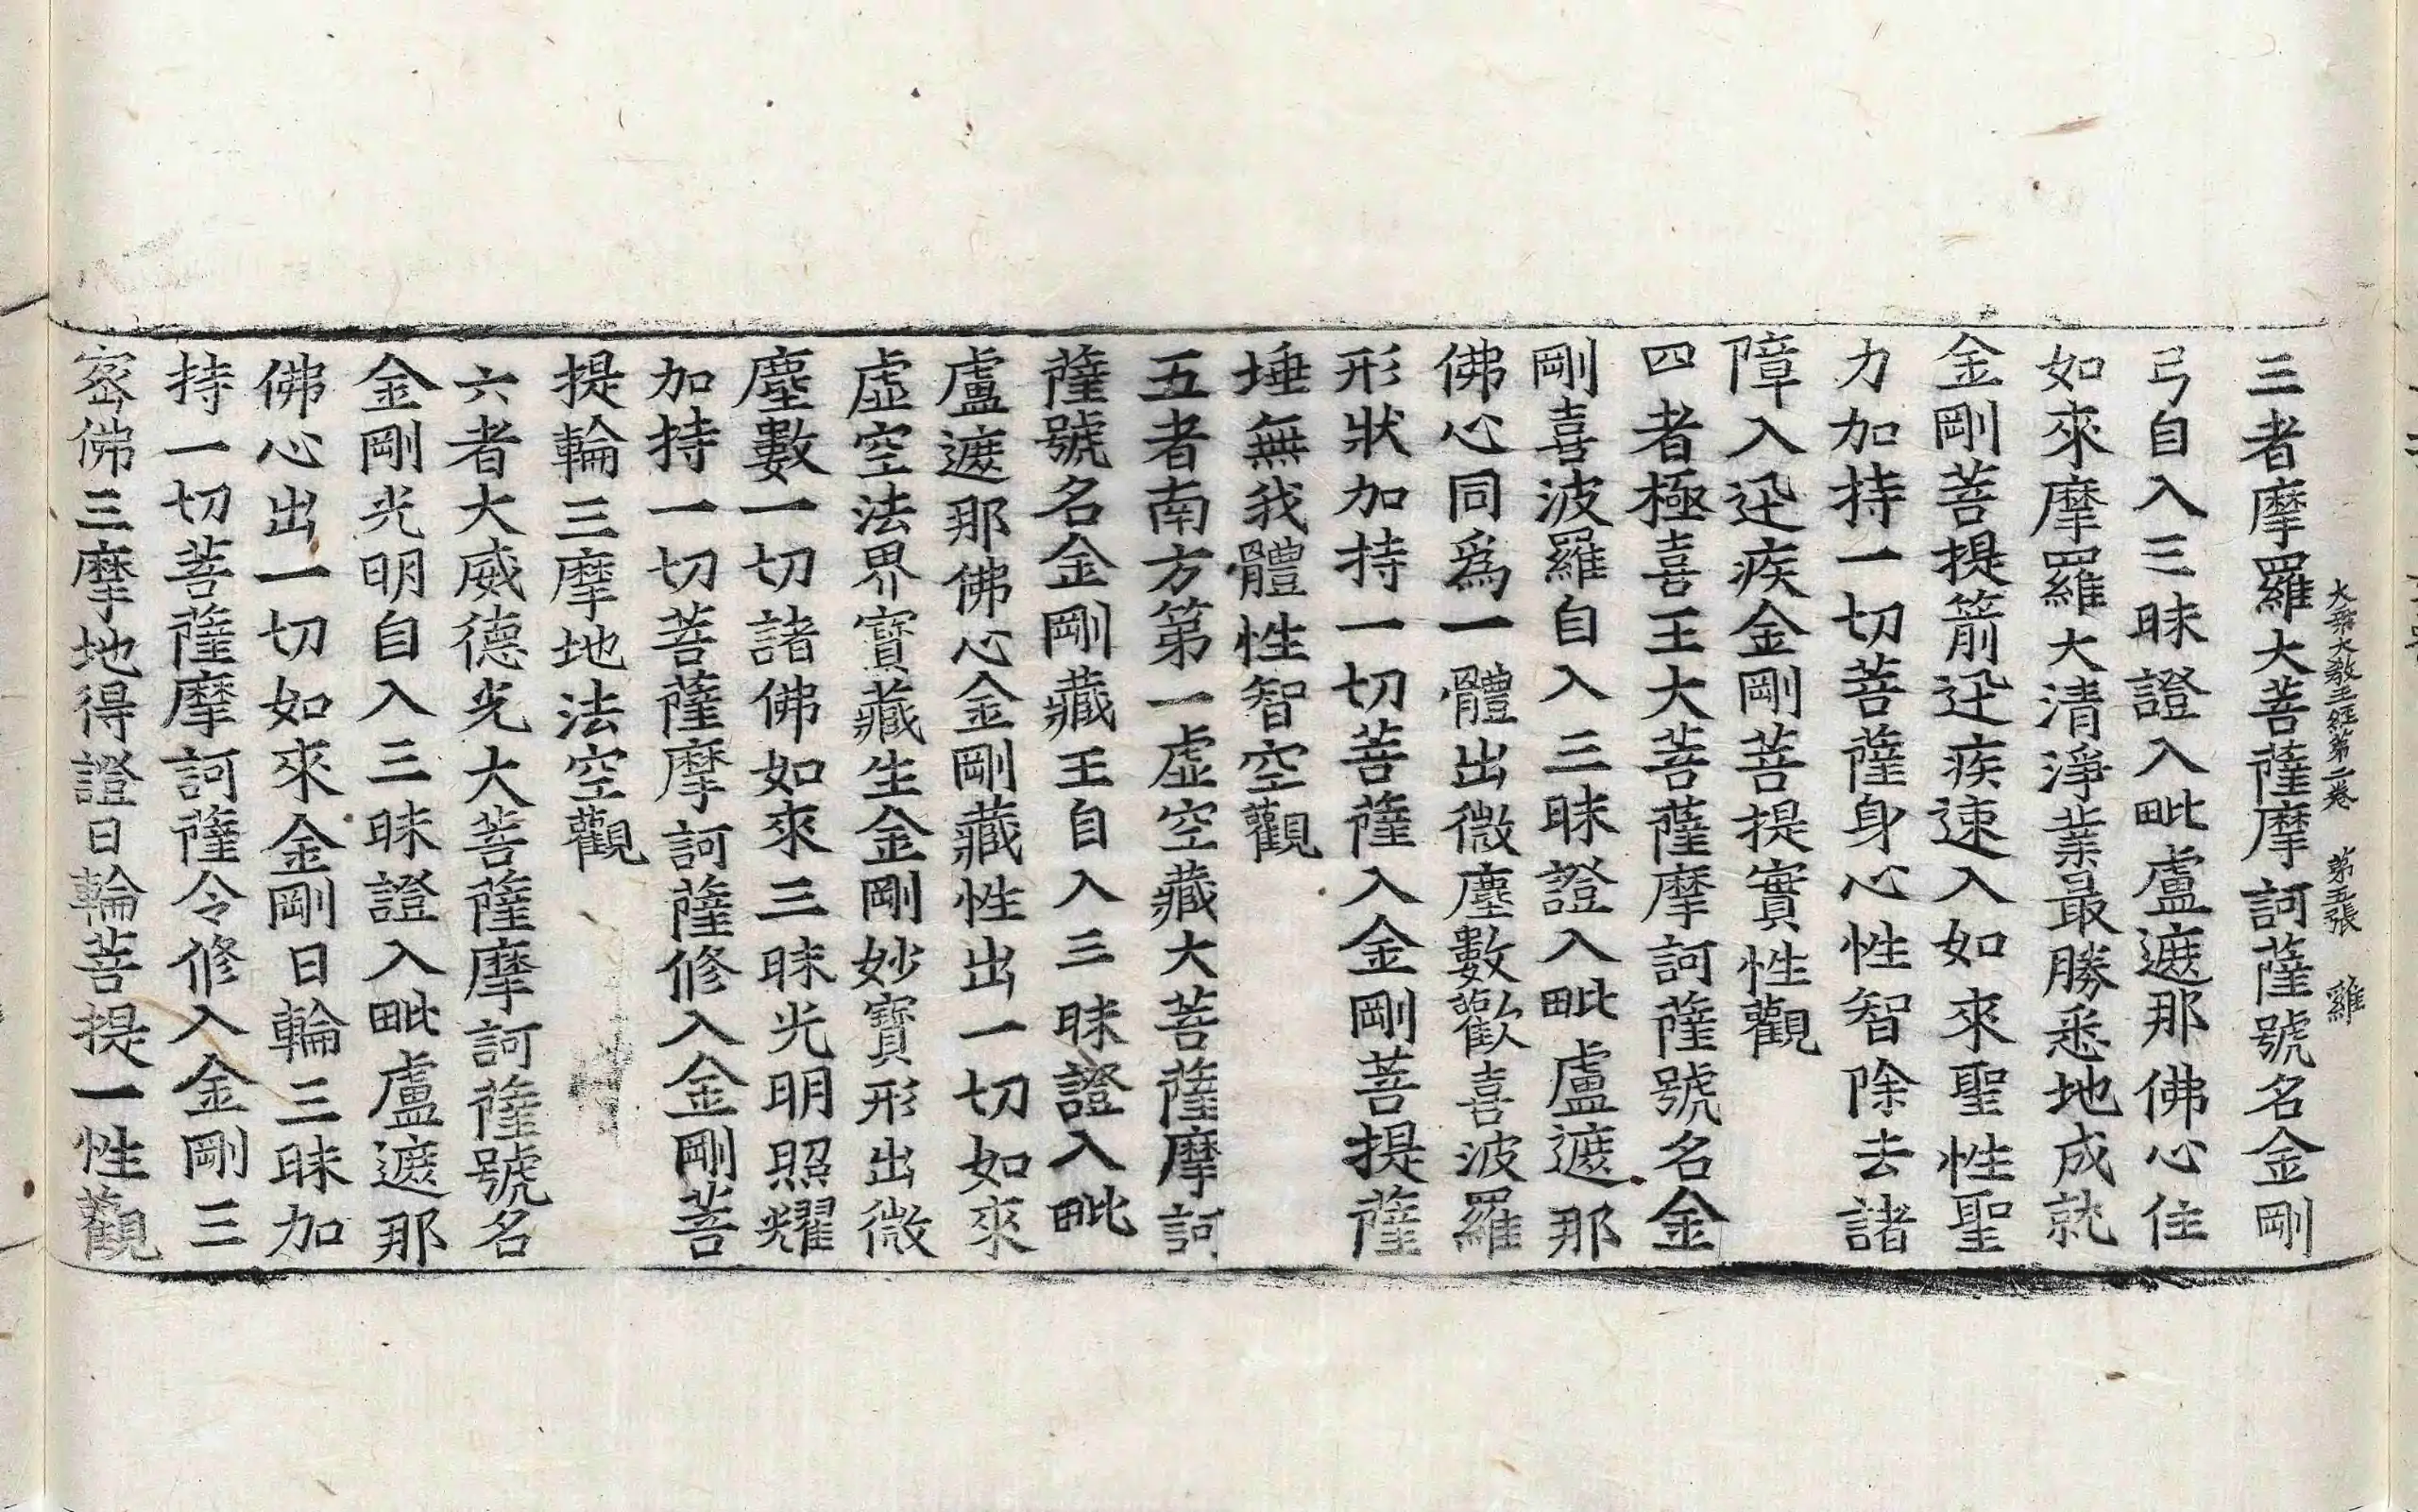 大乘大教王經第二卷 第五張 雞
三者摩羅大菩薩摩訶薩號名金剛
弓自入三昧證入毗盧遮那佛心住
如來摩羅大清淨業最勝悉地成就
金剛菩提箭迅疾速入如來聖性聖
力加持一切菩薩身心性智除去諸
障入迅疾金剛菩提實性觀
四者極喜王大菩薩摩訶薩號名金
剛喜波羅自入三昧證入毗盧遮那
佛心同爲一體出微塵數歡喜波羅
形狀加持一切菩薩入金剛菩提薩
埵無我體性智空觀
五者南方第一虛空藏大菩薩摩訶
薩號名金剛藏王自入三昧證入毗
盧遮那佛心金剛藏性出一切如來
虛空法界寶藏生金剛妙寶形出微
塵數一切諸佛如來三昧光明照耀
加持一切菩薩摩訶薩修入金剛菩
提輪三摩地法空觀
六者大威德光大菩薩摩訶薩號名
金剛光明自入三昧證入毗盧遮那
佛心出一切如來金剛日輪三昧加
持一切菩薩摩訶薩令修入金剛三
密佛三摩地得證日輪菩提一性觀